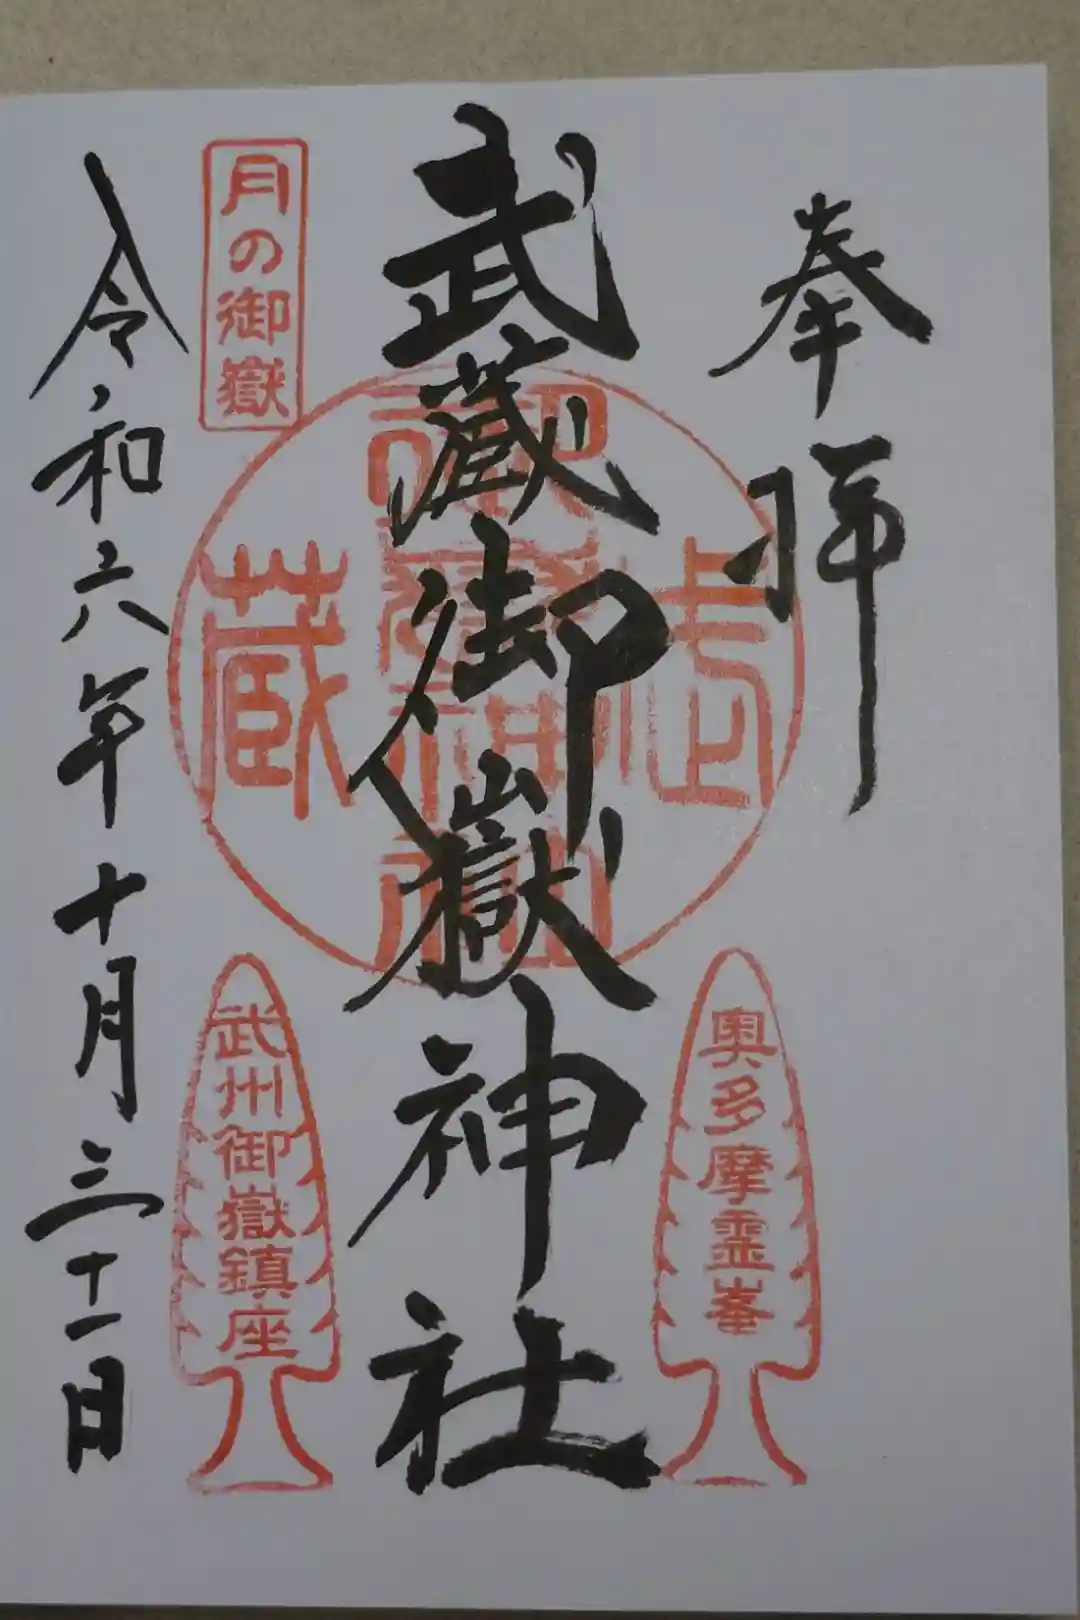 奉拝
奥多摩霊峯
武蔵御嶽神社
武蔵
御嶽神社
月の御嶽
武州御嶽鎮座
令和六年十月三十一日